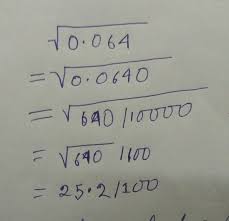 √0.064
= √0.0640
= √640/10000
= √640 /100
= 25.2/100